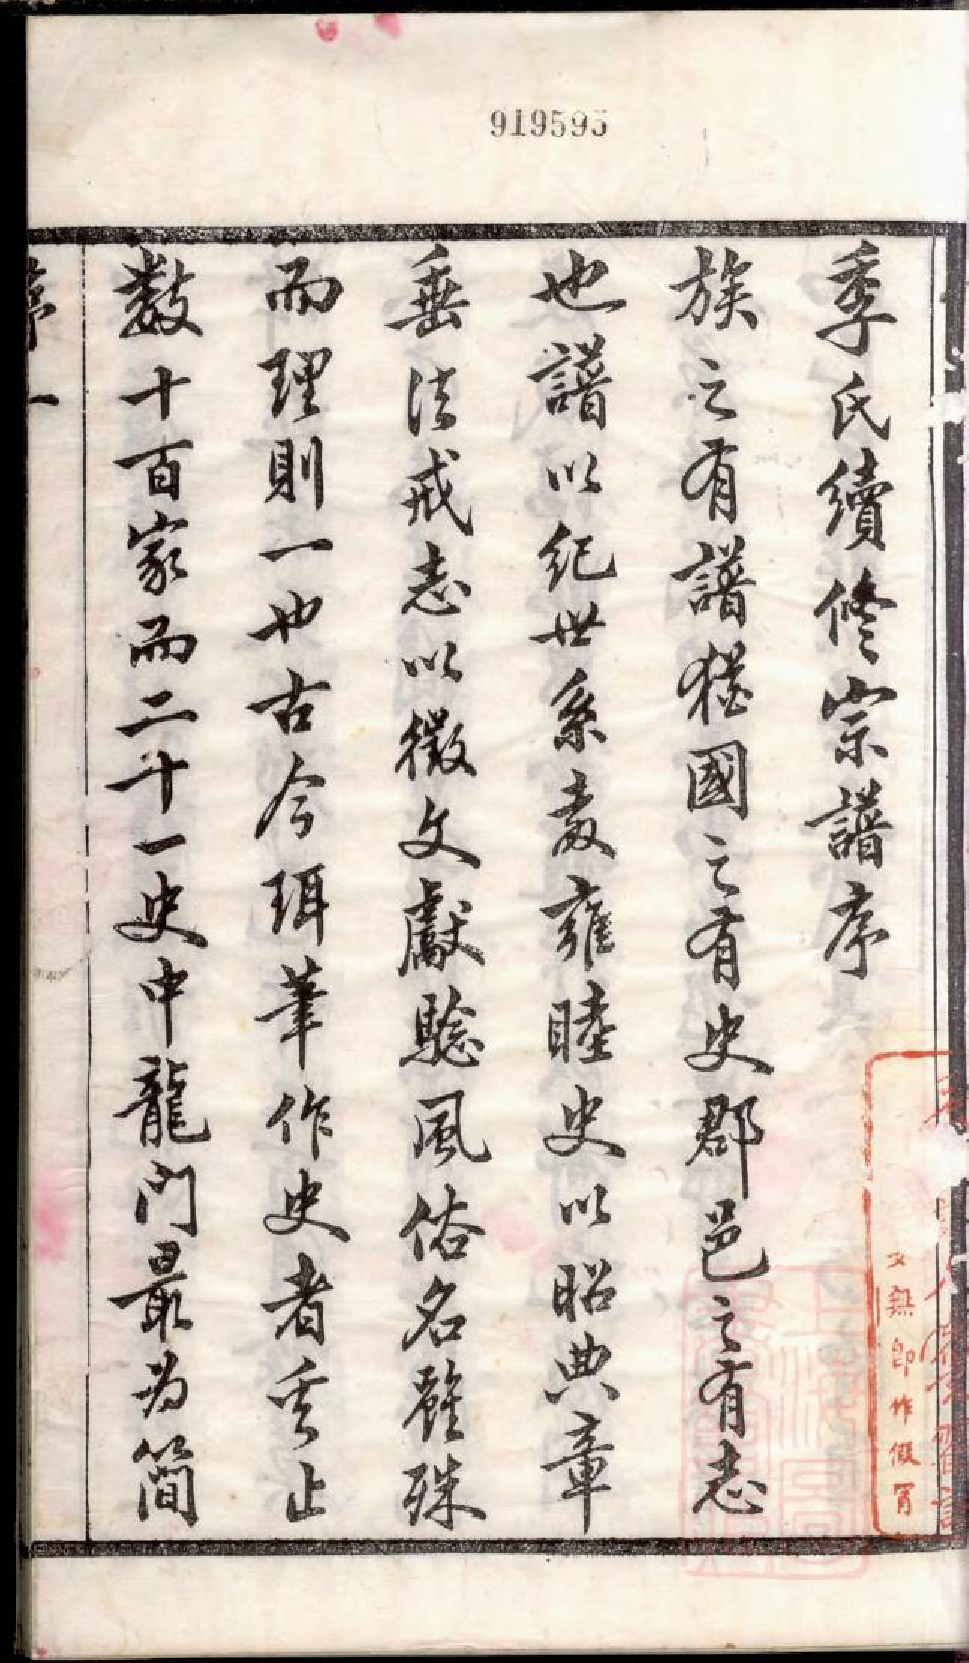 919595
季氏續修宗譜序
族之有譜猶國之有史郡邑之有志
也譜以紀世系敦雍睦史以昭典章
垂法戒志以徵文獻驗風俗名雖殊
而理則一也古今珥筆作史者奚止
數十百家而二十一史中龍門最為簡
無印作假冒